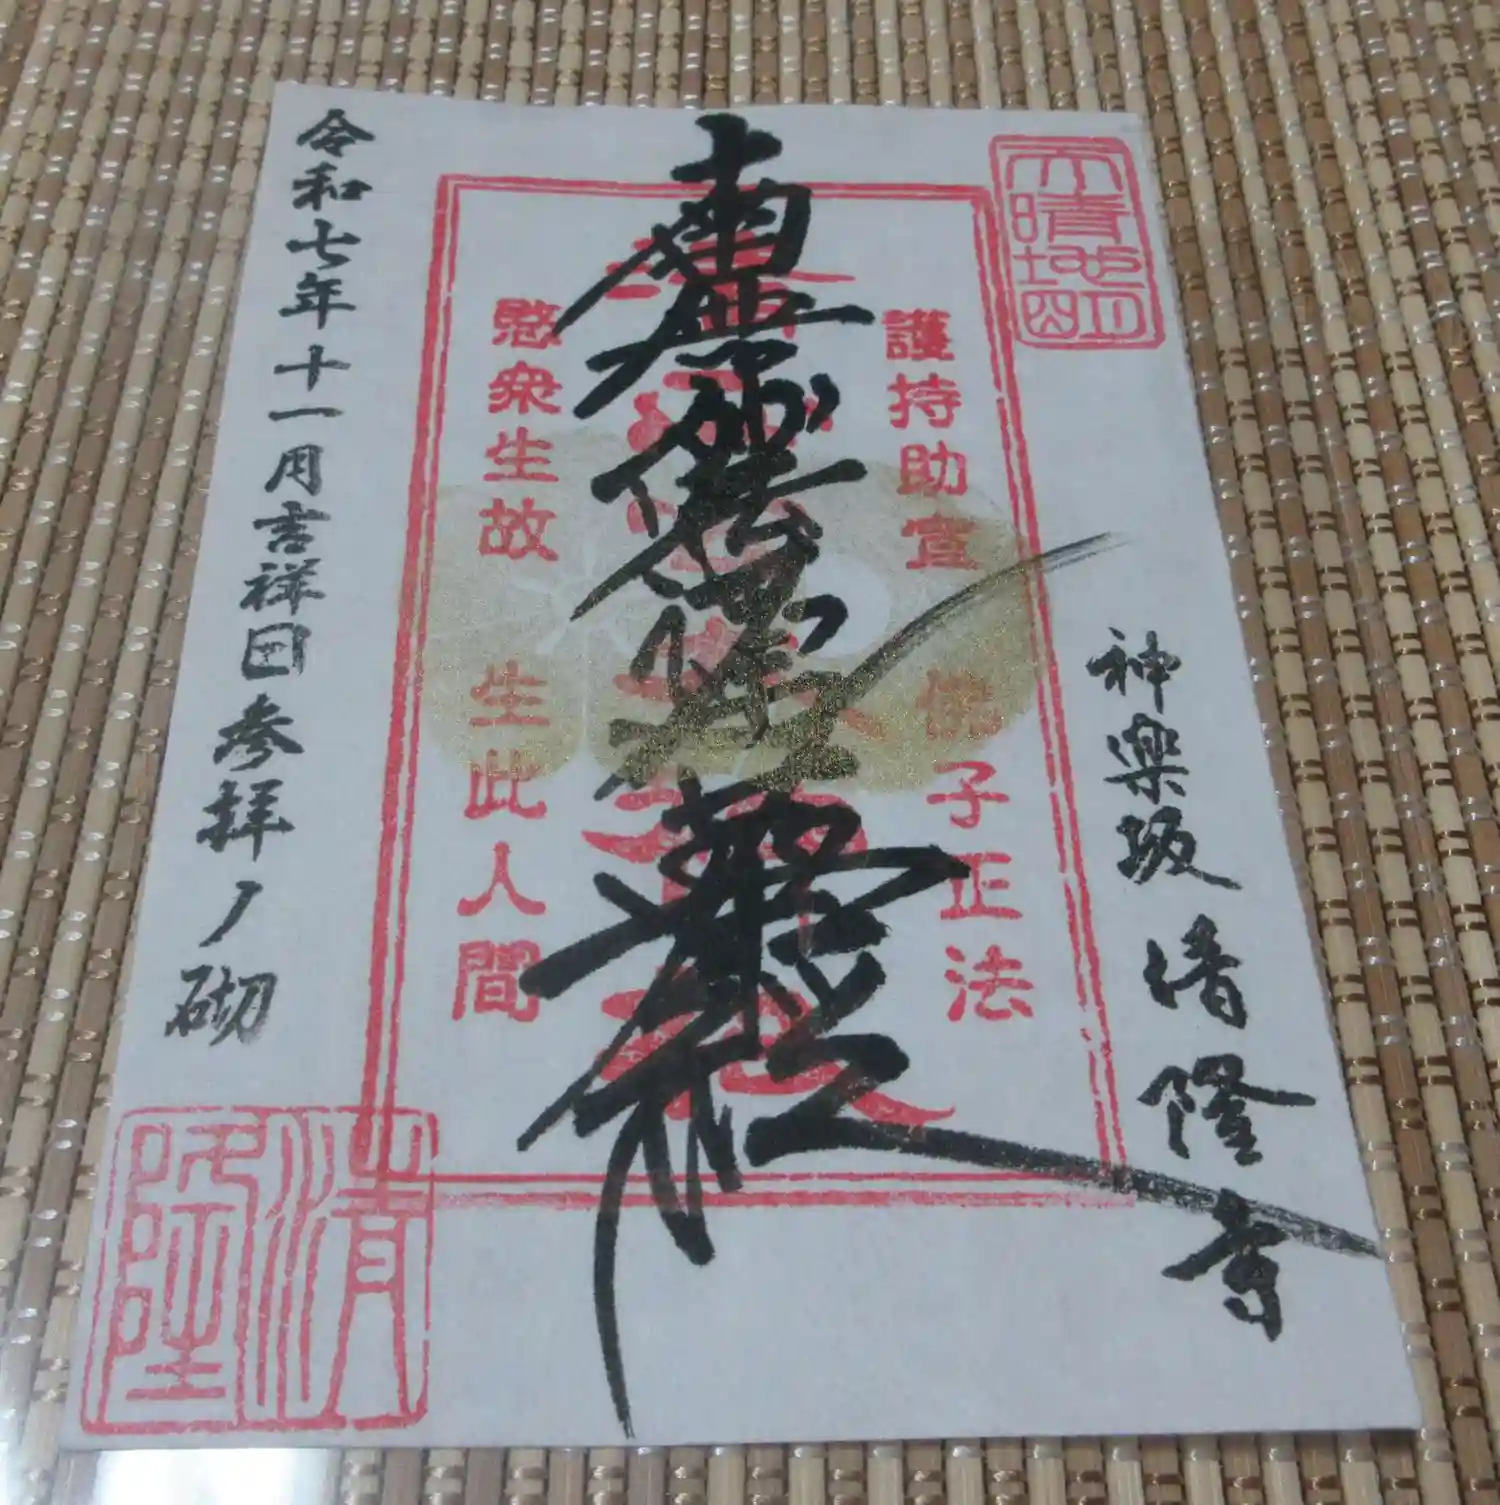 天晴地明
神楽坂 清隆寺
護持助宣 佛子正法
南無妙法蓮華經
愍衆生故 生此人間
令和七年十一月吉祥日参拝ノ砌
清隆